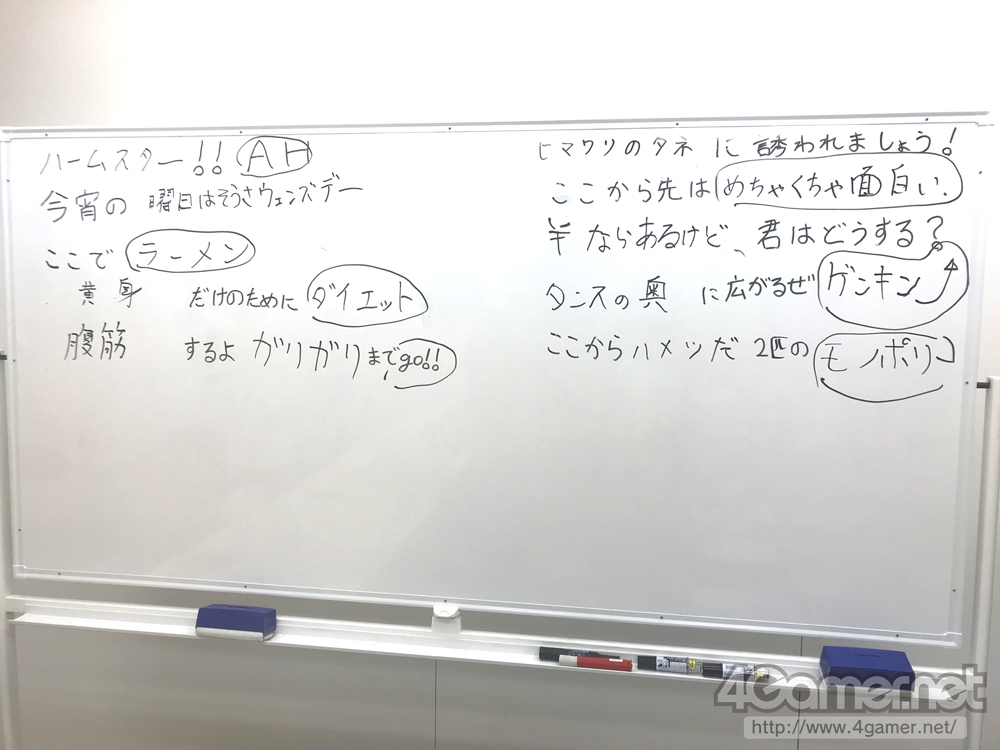 ハームスター!! AH
今宵の 曜日はそうさウェンズデー
ここで ラーメン
黄身 だけのために ダイエット
腹筋 するよ ガリガリまで go!!
ヒマワリのタネ に 誘われましょう!
ここから先は めちゃくちゃ面白い.
¥ ならあるけど、君はどうする?
タンスの奥 に広がるぜ ゲンキン
ここからハメツだ 2匹の モノポリー
4Gamer.net
http://www.4gamer.net/